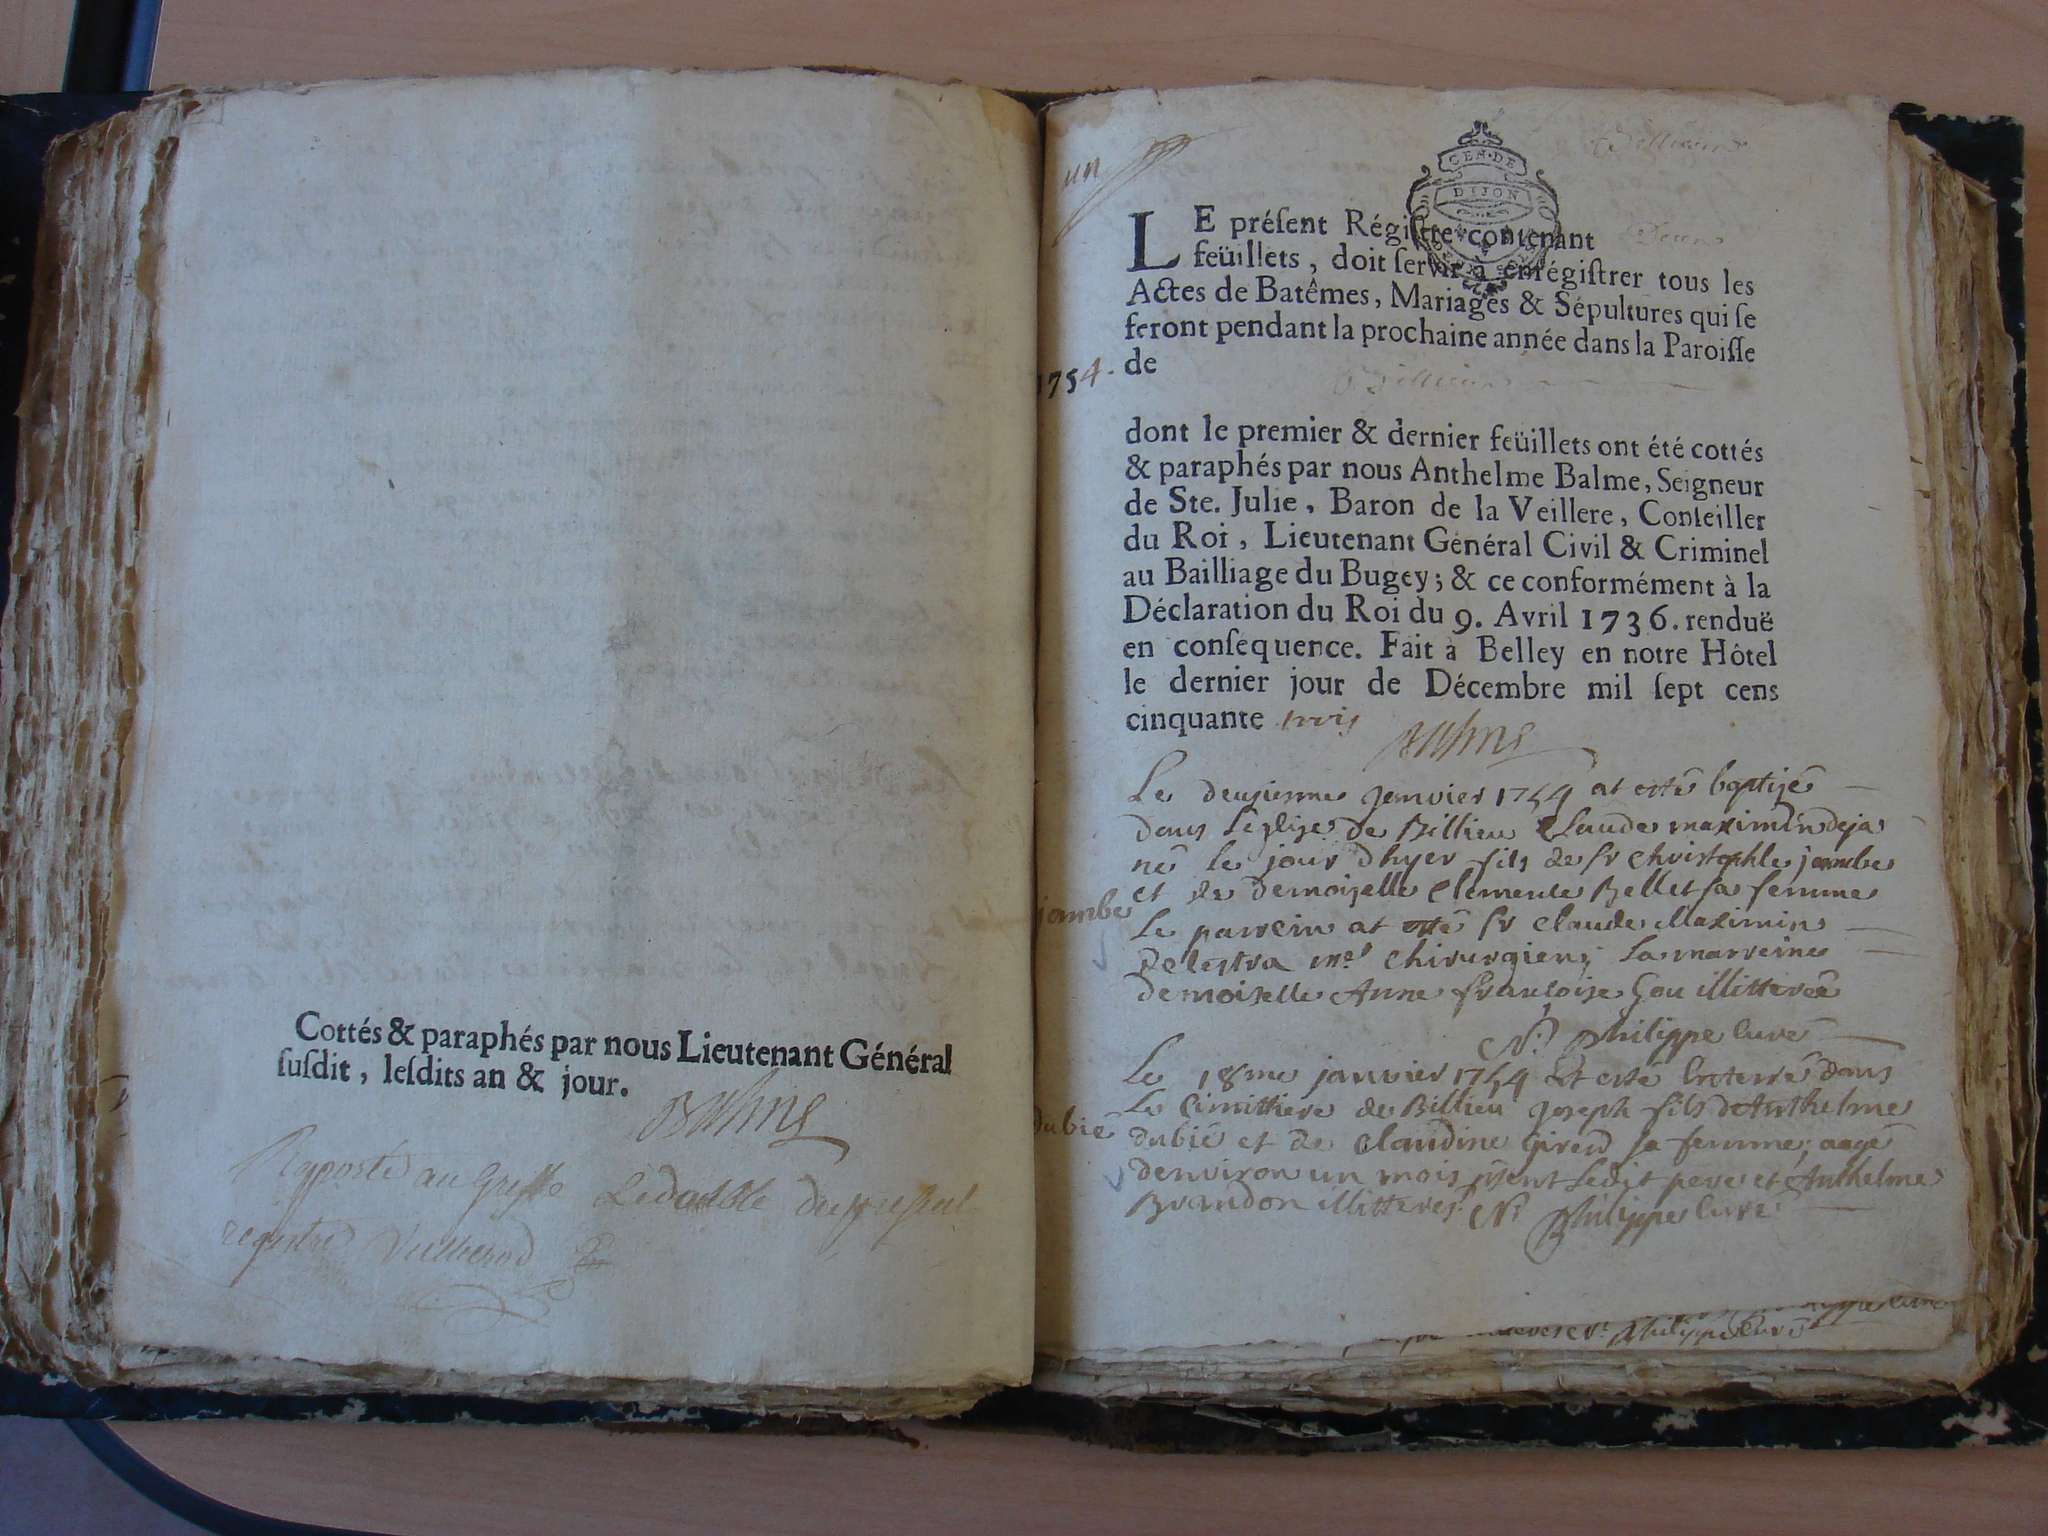 Cottés & paraphés par nous Lieutenant Général
susdit, lesdits an & jour.
Balme
Rapporté au Greffe Le double du présent
registre
un
Billieu
CEN. DE
DIJON
LE présent Régistre contenant
feüillets, doit servir à enrégistrer tous les
Actes de Batêmes, Mariages & Sépultures qui se
feront pendant la prochaine année dans la Paroisse
de Billieu
1754.
dont le premier & dernier feüillets ont été cottés
& paraphés par nous Anthelme Balme, Seigneur
de Ste. Julie, Baron de la Veillere, Conseiller
du Roi, Lieutenant Général Civil & Criminel
au Bailliage du Bugey; & ce conformément à la
Déclaration du Roi du 9. Avril 1736. renduë
en conséquence. Fait à Belley en notre Hôtel
le dernier jour de Décembre mil sept cens
cinquante trois
Balme
Le deuzieme Janvier 1754 at esté baptisé
dans l'eglise de Billieu Claude maximin deja
né le jour dhyer fils de sr Christophle jambe
et de demoiselle Clemente Bellet sa femme
jambe
Le parrein at esté sr Claude Maximin
Delestra me Chirurgien; La marreine
demoiselle Anne françoise Gou illitterée
N. Philippe Curé
Le 18me janvier 1754 Et esté Enterré dans
Le Cimittiere de Billieu Joseph fils d'Anthelme
dubié
dubié et de Claudine Girerd sa femme, aagé
denviron un mois, psent Ledit pere et Anthelme
Brandon illitteres N. Philippe Curé
Philippe Curé